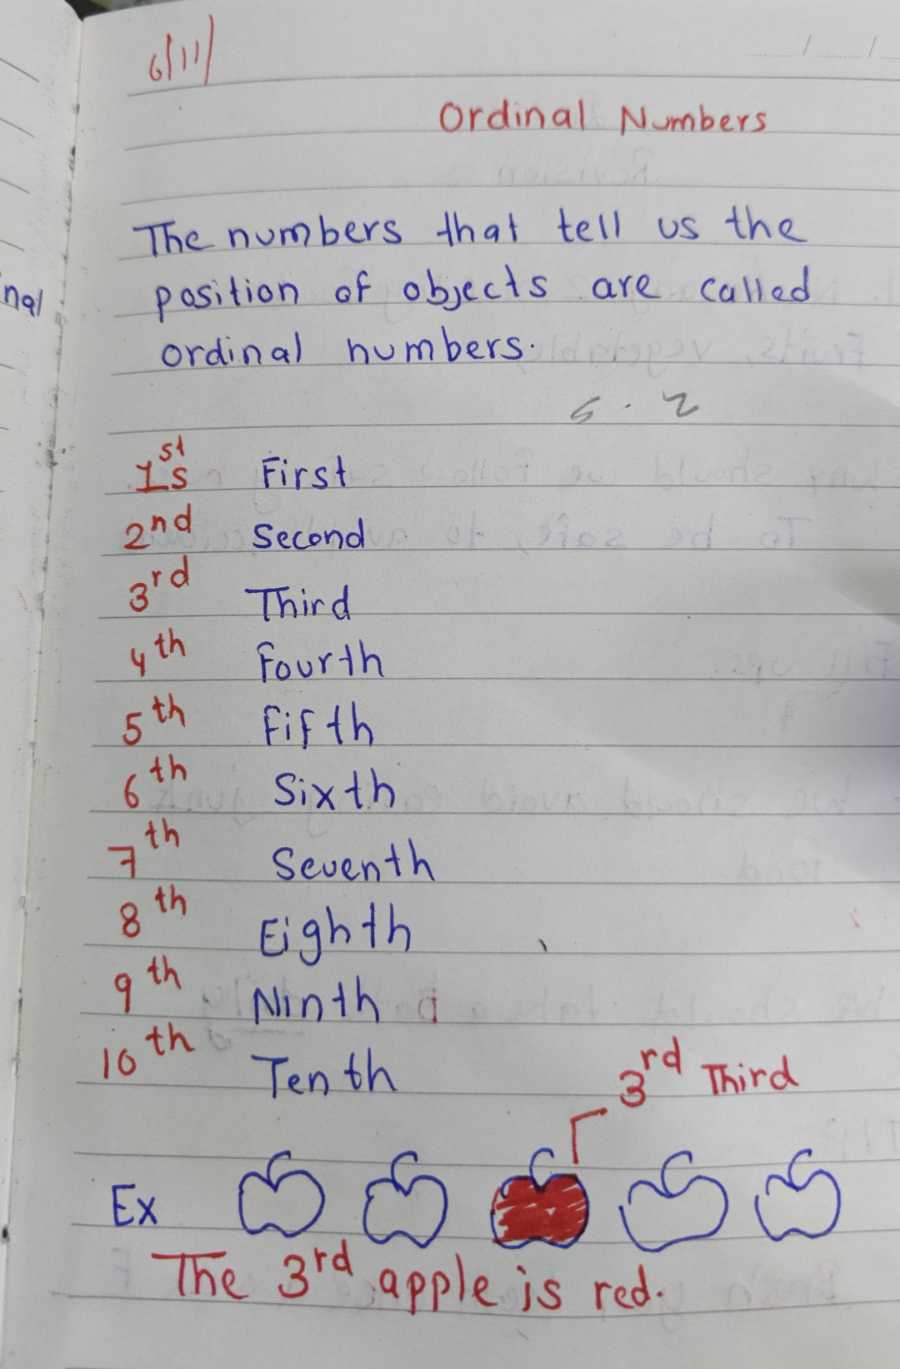 6/11/
Ordinal Numbers
The numbers that tell us the
position of objects are called
ordinal numbers.
1s st First
2nd Second
3rd Third
4th Fourth
5th Fifth
6th Sixth
7th Seventh
8th Eighth
9th Ninth
10th Tenth
3rd Third
Ex
The 3rd apple is red.